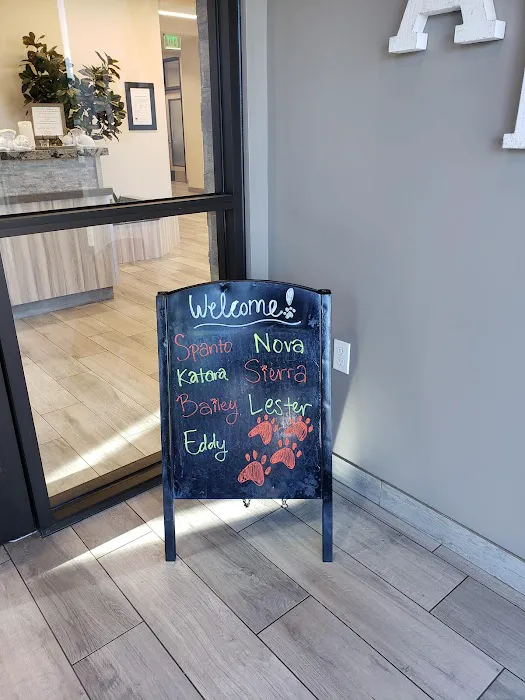 Welcome!
Spanto Nova
Katara Sierra
Bailey Lester
Eddy
A